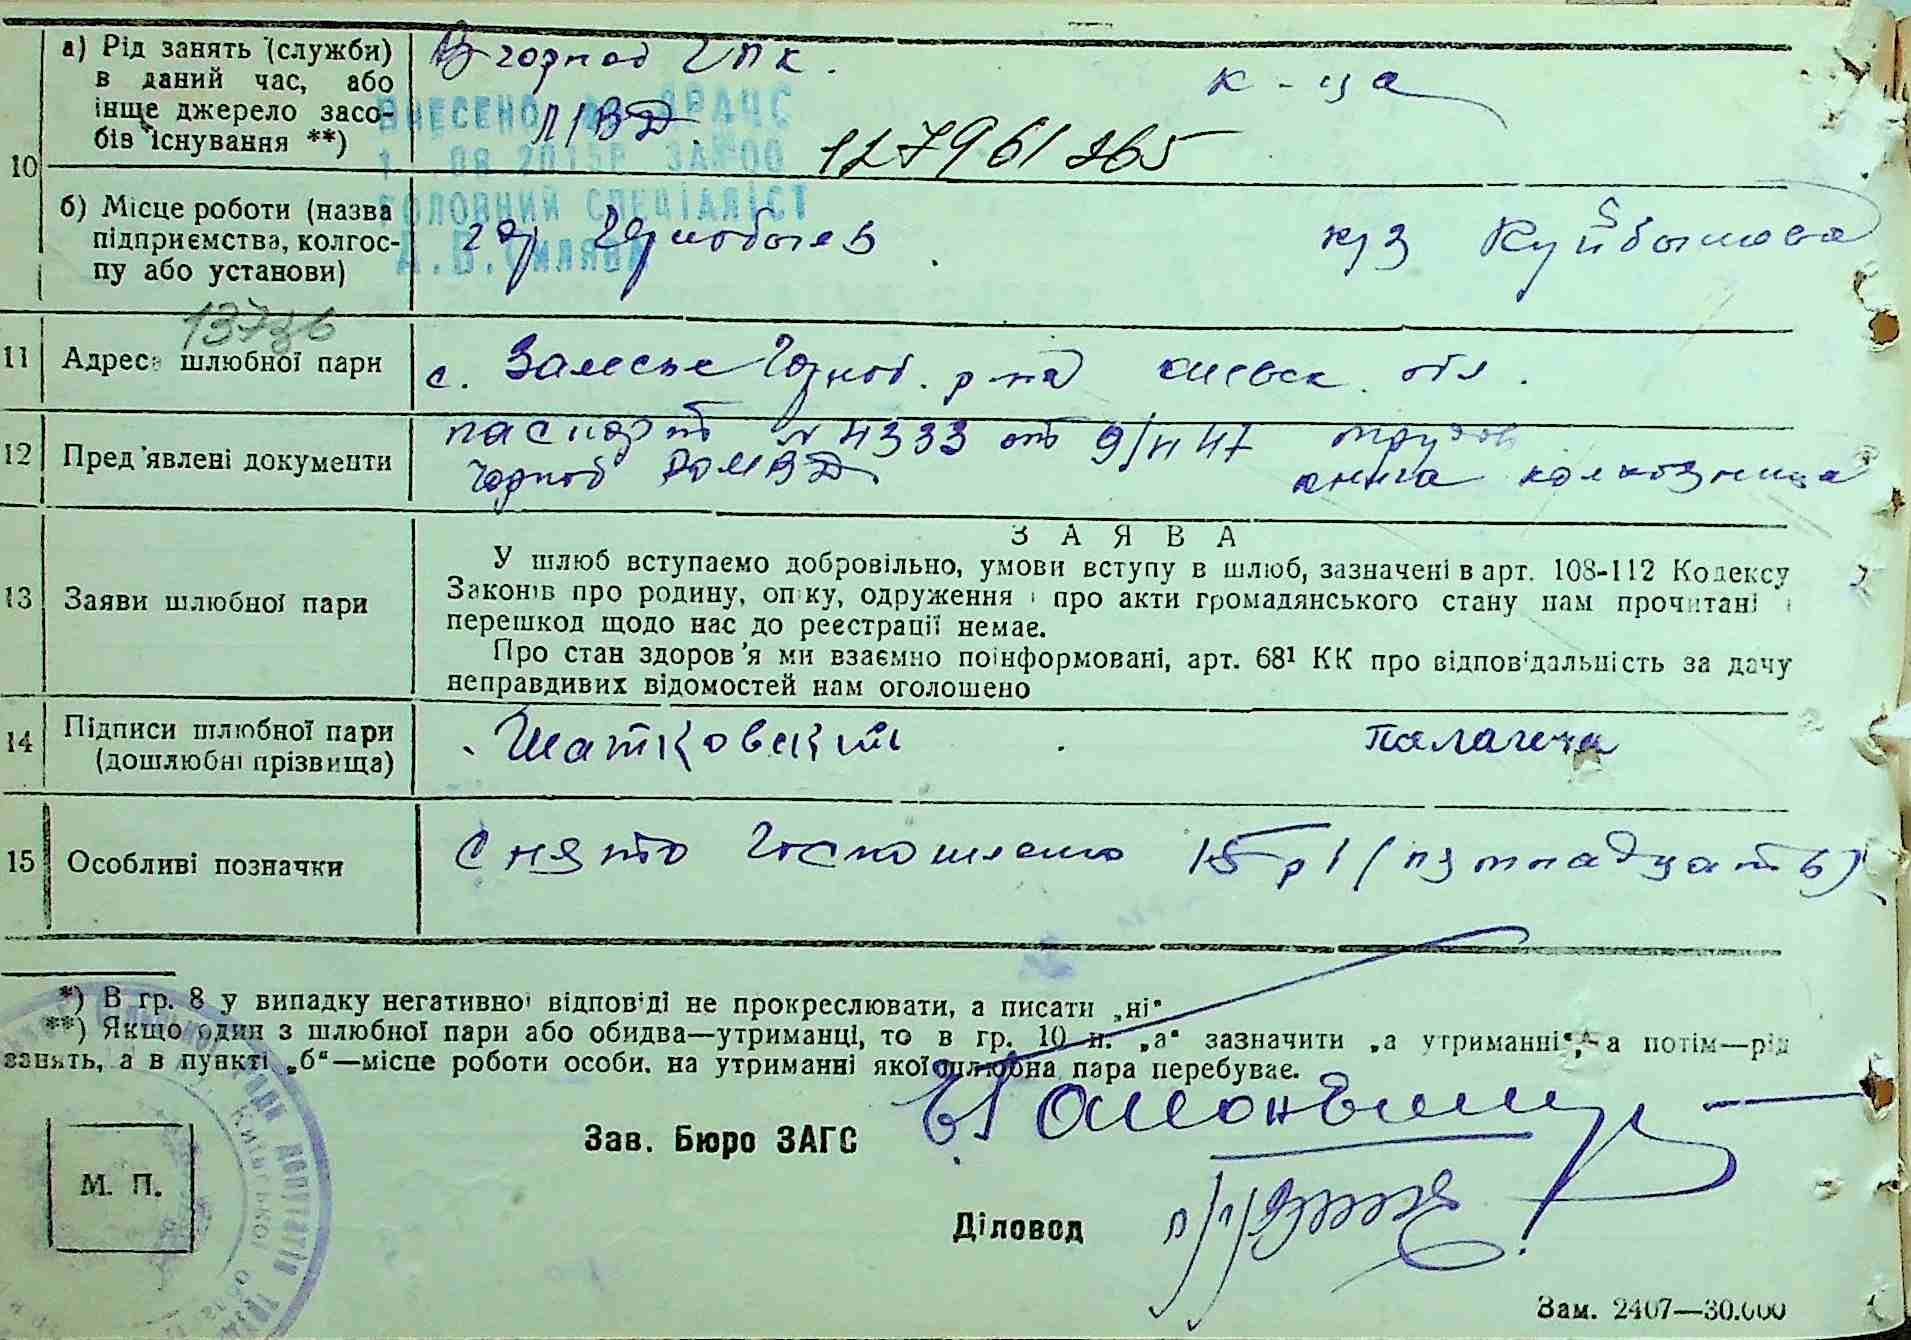 10
а) Рід занять (служби)
в даний час, або
інше джерело засо-
бів існування **)
к-ца
ВНЕСЕНО ДРАЦС
127961265
ГОЛОВНИЙ СПЕЦІАЛІСТ
б) Місце роботи (назва
підприємства, колгос-
пу або установи)
гор Чернобыль
Куйбышева
11
Адреса шлюбної пари
с. Залесье Черноб. р-на киевск. обл.
12
Пред'явлені документи
паспорт № 4333 от 9/ 47
Черноб РОМВД
трудов
книга колхозница
13
Заяви шлюбної пари
ЗАЯВА
У шлюб вступаємо добровільно, умови вступу в шлюб, зазначені в арт. 108-112 Кодексу
Законів про родину, опіку, одруження і про акти громадянського стану нам прочитані і
перешкод щодо нас до реєстрації немає.
Про стан здоров'я ми взаємно поінформовані, арт. 68¹ КК про відповідальність за дачу
неправдивих відомостей нам оголошено
14
Підписи шлюбної пари
(дошлюбні прізвища)
Шатковский
15
Особливі позначки
Снято Госпошлено 15 р (пятнадцать)
*) В гр. 8 у випадку негативної відповіді не прокреслювати, а писати „ні"
**) Якщо один з шлюбної пари або обидва—утриманці, то в гр. 10 п. „а" зазначити „а утриманні", а потім—рід
занять, а в пункті „б"—місце роботи особи, на утриманні якої шлюбна пара перебуває.
Зав. Бюро ЗАГС
М. П.
Діловод
Зам. 2407—30.000